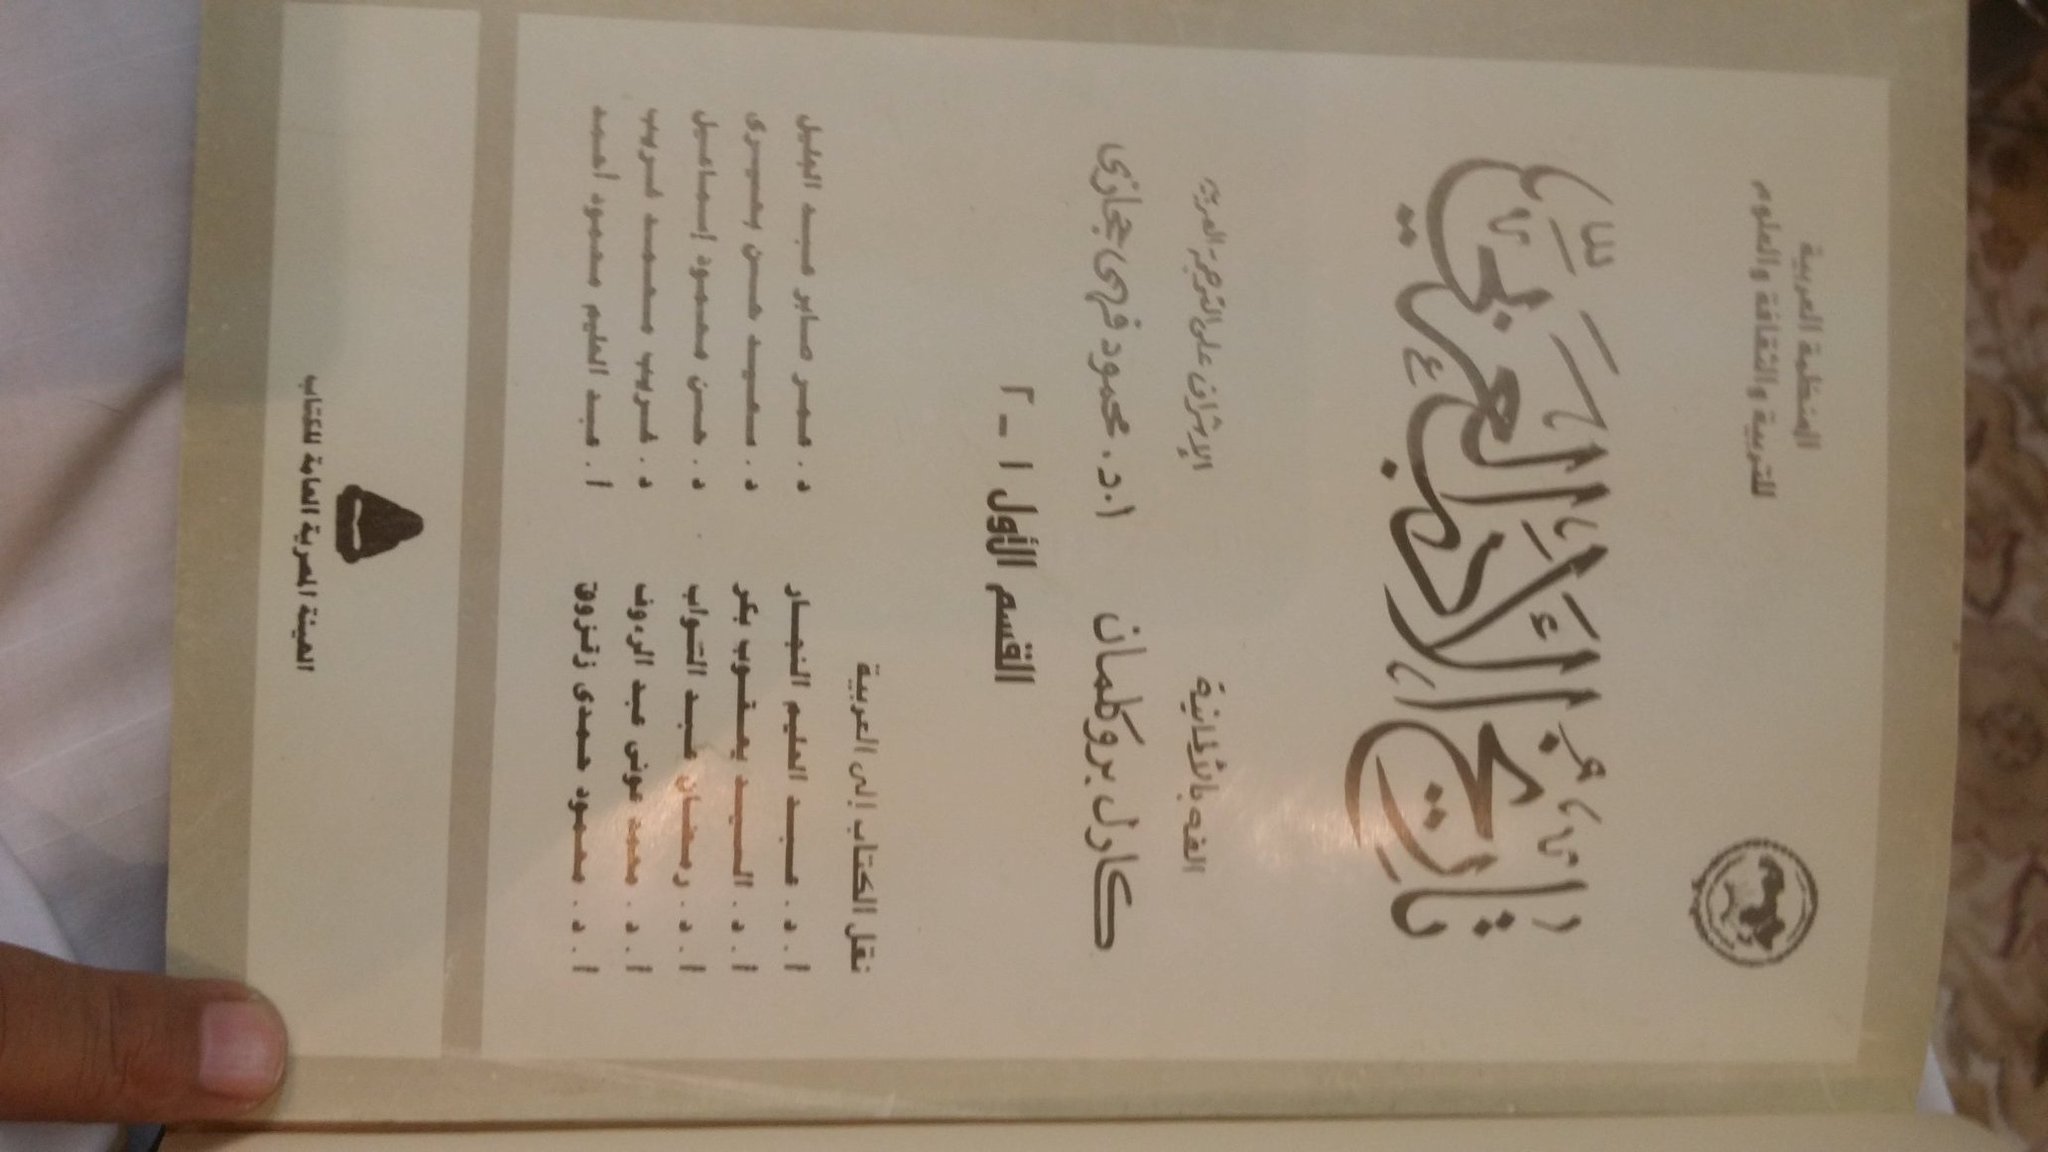 المنظمة العربية
للتربية والثقافة والعلوم
تاريخ الأدب العربي
ألفه بالألمانية
كارل بروكلمان
الإشراف على الترجمة العربية
أ.د. محمود فهمى حجازى
القسم الأول ١ - ٢
نقل الكتاب إلى العربية
أ. د. عبد الحليم النجار
أ. د. السيد يعقوب بكر
أ. د. رمضان عبد التواب
أ. د. محمد عونى عبد الرءوف
أ. د. محمود حمدى زقزوق
د. عمر صابر عبد الجليل
د. سعيد حسن بحيرى
د. حسن محمود إسماعيل
د. غريب محمد غريب
أ. عبد الحليم محمود أحمد
الهيئة المصرية العامة للكتاب